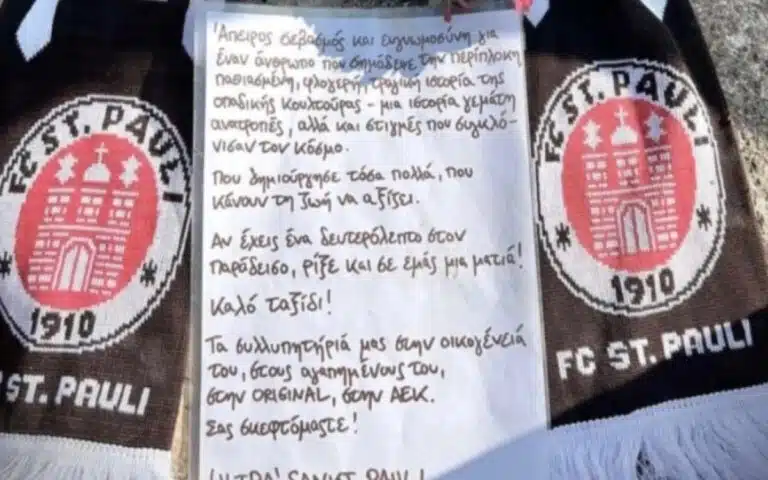 Άπειρος σεβασμός και ευγνωμοσύνη για
έναν άνθρωπο που σημάδεψε την περίπλοκη
παθιασμένη, φλογερή, τραγική ιστορία της
οπαδικής κουλτούρας - μια ιστορία γεμάτη
ανατροπές, αλλά και στιγμές που συγκλό-
νισαν τον κόσμο.
Που δημιούργησε τόσα πολλά, που
κάνουν τη ζωή να αξίζει.
Αν έχεις ένα δευτερόλεπτο στον
παράδεισο, ρίξε και σε εμάς μια ματιά!
Καλό ταξίδι!
Τα συλλυπητήριά μας στην οικογένειά
του, στους αγαπημένους του,
στην ORIGINAL, στην ΑΕΚ.
Σας σκεφτόμαστε!
ULTRA' SANKT PAULI
FC ST. PAULI
1910
ST. PAULI
FC ST. PAULI
1910
FC ST. PAULI